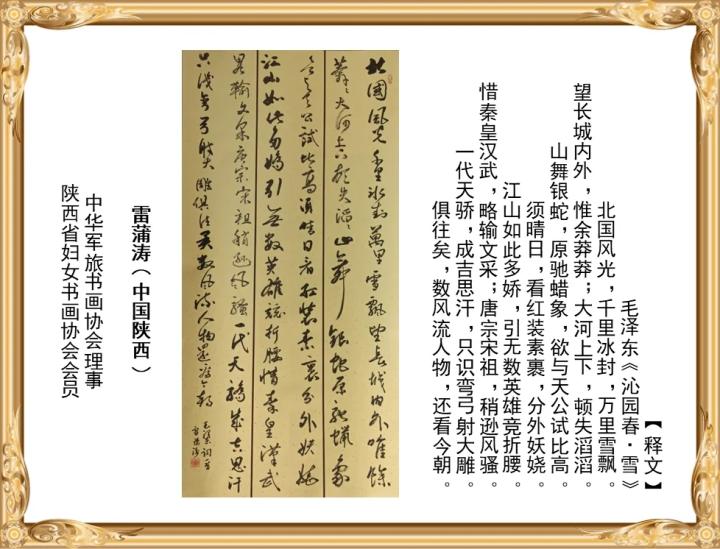 【释文】
毛泽东《沁园春·雪》
北国风光，千里冰封，万里雪飘。
望长城内外，惟余莽莽；大河上下，顿失滔滔。
山舞银蛇，原驰蜡象，欲与天公试比高。
须晴日，看红装素裹，分外妖娆。
江山如此多娇，引无数英雄竞折腰。
惜秦皇汉武，略输文采；唐宗宋祖，稍逊风骚。
一代天骄，成吉思汗，只识弯弓射大雕。
俱往矣，数风流人物，还看今朝。
北國風光千里冰封萬里雪飄望長城内外唯餘
莽莽大河上下頓失滔滔山舞銀蛇原馳蠟象
欲与天公試比高須晴日看紅裝素裹分外妖嬈
江山如此多嬌引無數英雄競折腰惜秦皇漢武
略輸文采唐宗宋祖稍遜風騷一代天驕成吉思汗
只識彎弓射大雕俱往矣數風流人物還看今朝
雷蒲涛（中国陕西）
中华军旅书画协会理事
陕西省妇女书画协会会员